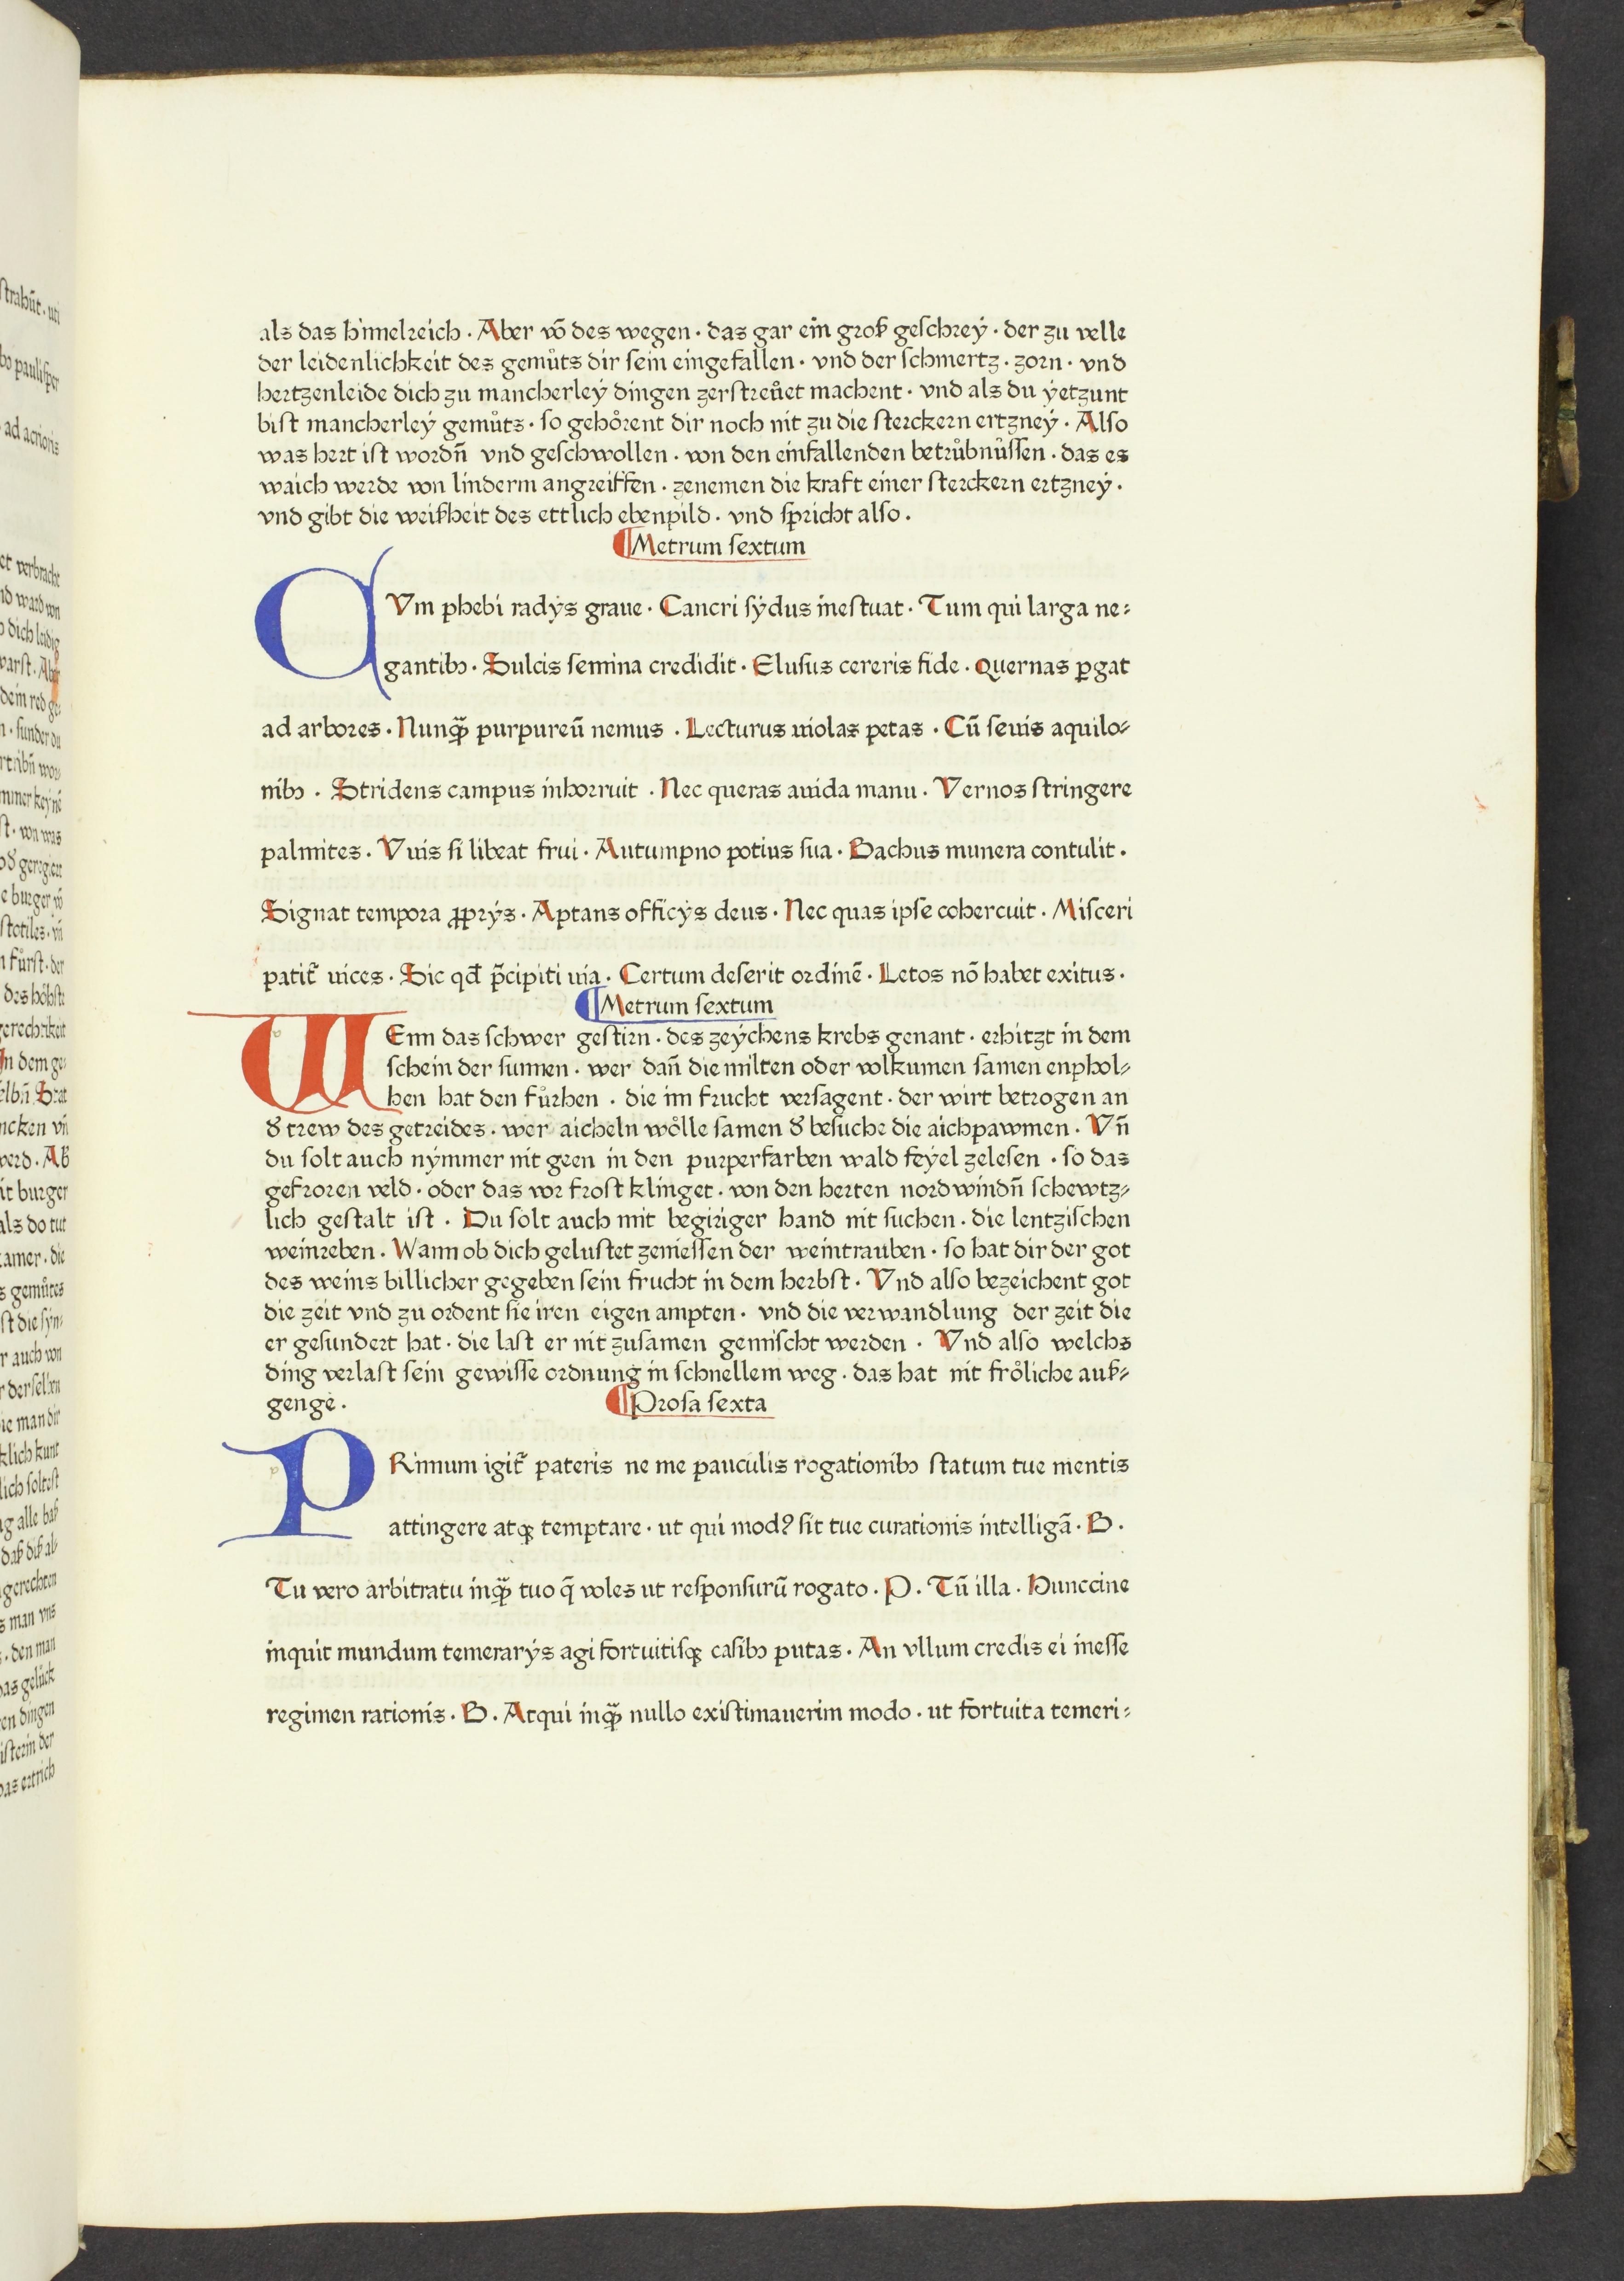 als das himelreich · Aber vō des wegen · das gar ein groß geschrey · der zu velle
der leidenlichkeit des gemůts dir sein eingefallen · vnd der schmertz · zorn · vnd
hertzenleide dich zu mancherleÿ dingen zerstreůet machent · vnd als du ÿetzunt
bist mancherleÿ gemůts · so gehôrent dir noch nit zu die sterckern ertzneÿ · Also
was hert ist wordn̄ vnd geschwollen · von den einfallenden betrůbnůssen · das es
waich werde von linderm angreiffen · zenemen die kraft einer sterckern ertzneÿ ·
vnd gibt die weißheit des ettlich ebenpild · vnd spricht also .
¶Metrum sextum
CVm phebi radÿs graue · Cancri sÿdus inestuat · Tum qui larga ne⸗
gantibꝫ · Sulcis semina credidit · Elusus cereris fide · Quernas ꝑgat
ad arbores · Nunqꝫ̄ purpureū nemus · Lecturus uiolas petas · Cū seuis aquilo⸗
nibꝫ · Stridens campus inhorruit · Nec queras auida manu · Vernos stringere
palmites · Vuis si libeat frui · Autumpno potius sua · Bachus munera contulit ·
Signat tempora ꝓprÿs · Aptans officÿs deus · Nec quas ipse cohercuit · Misceri
patit᷑ uices · Sic qd̄ p̄cipiti uia · Certum deserit ordinē · Letos nō habet exitus ·
¶Metrum sextum
WEnn das schwer gestirn · des zeÿchens krebs genant · erhitzt in dem
schein der sunnen · wer dan̄ die milten oder volkumen samen enphol⸗
hen hat den fůrhen · die im frucht versagent · der wirt betrogen an
ď trew des getreides · wer aicheln wôlle samen ď besuche die aichpawmen · Vn̄
du solt auch nÿmmer nit geen in den purperfarben wald feÿel zelesen · so das
gefroren veld · oder das vor frost klinget · von den herten nordwindn̄ schewtz⸗
lich gestalt ist · Du solt auch mit begiriger hand nit suchen · die lentzischen
weinreben · Wann ob dich gelustet zeniessen der weintrauben · so hat dir der got
des weins billicher gegeben sein frucht in dem herbst · Vnd also bezeichent got
die zeit vnd zu ordent sie iren eigen ampten · vnd die verwandlung der zeit die
er gesundert hat · die last er nit zusamen gemischt werden · Vnd also welchs
ding verlast sein gewisse ordnung in schnellem weg · das hat nit frôliche auß⸗
genge · ¶Prosa sexta
PRimum igit᷑ pateris ne me pauculis rogationibꝫ statum tue mentis
attingere atqꝫ temptare · ut qui modꝰ sit tue curationis intelligā · B ·
Tu vero arbitratu inqꝫ̄ tuo q̄ voles ut responsurū rogato · P · Tū illa · Hunccine
inquit mundum temerarÿs agi fortuitisqꝫ casibꝫ putas · An vllum credis ei inesse
regimen rationis · B · Atqui inqꝫ̄ nullo existimauerim modo · ut fortuita temeri⸗